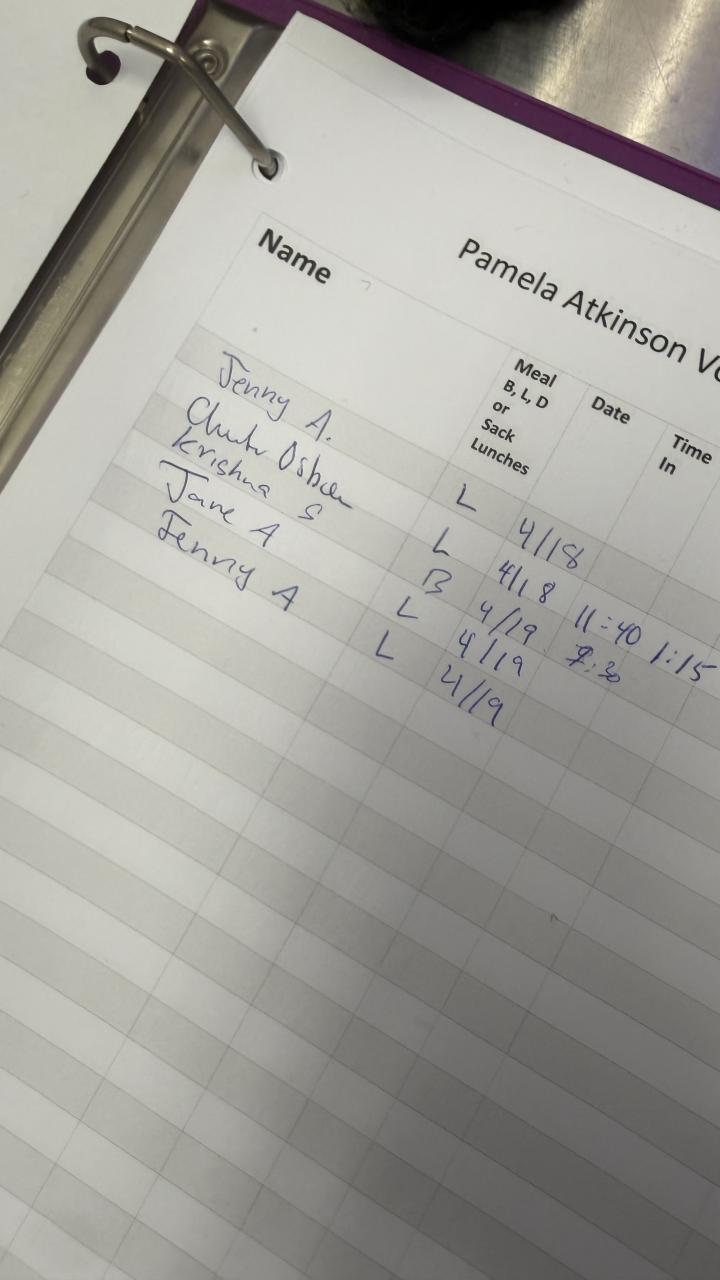 Pamela Atkinson
Name
Meal B, L, D or Sack Lunches
Date
Time In
Jenny A. L 4/18
Osborn L 4/18 11:40 1:15
Krishna S B 4/19 :30
Jane A L 4/19
Jenny A L 4/19